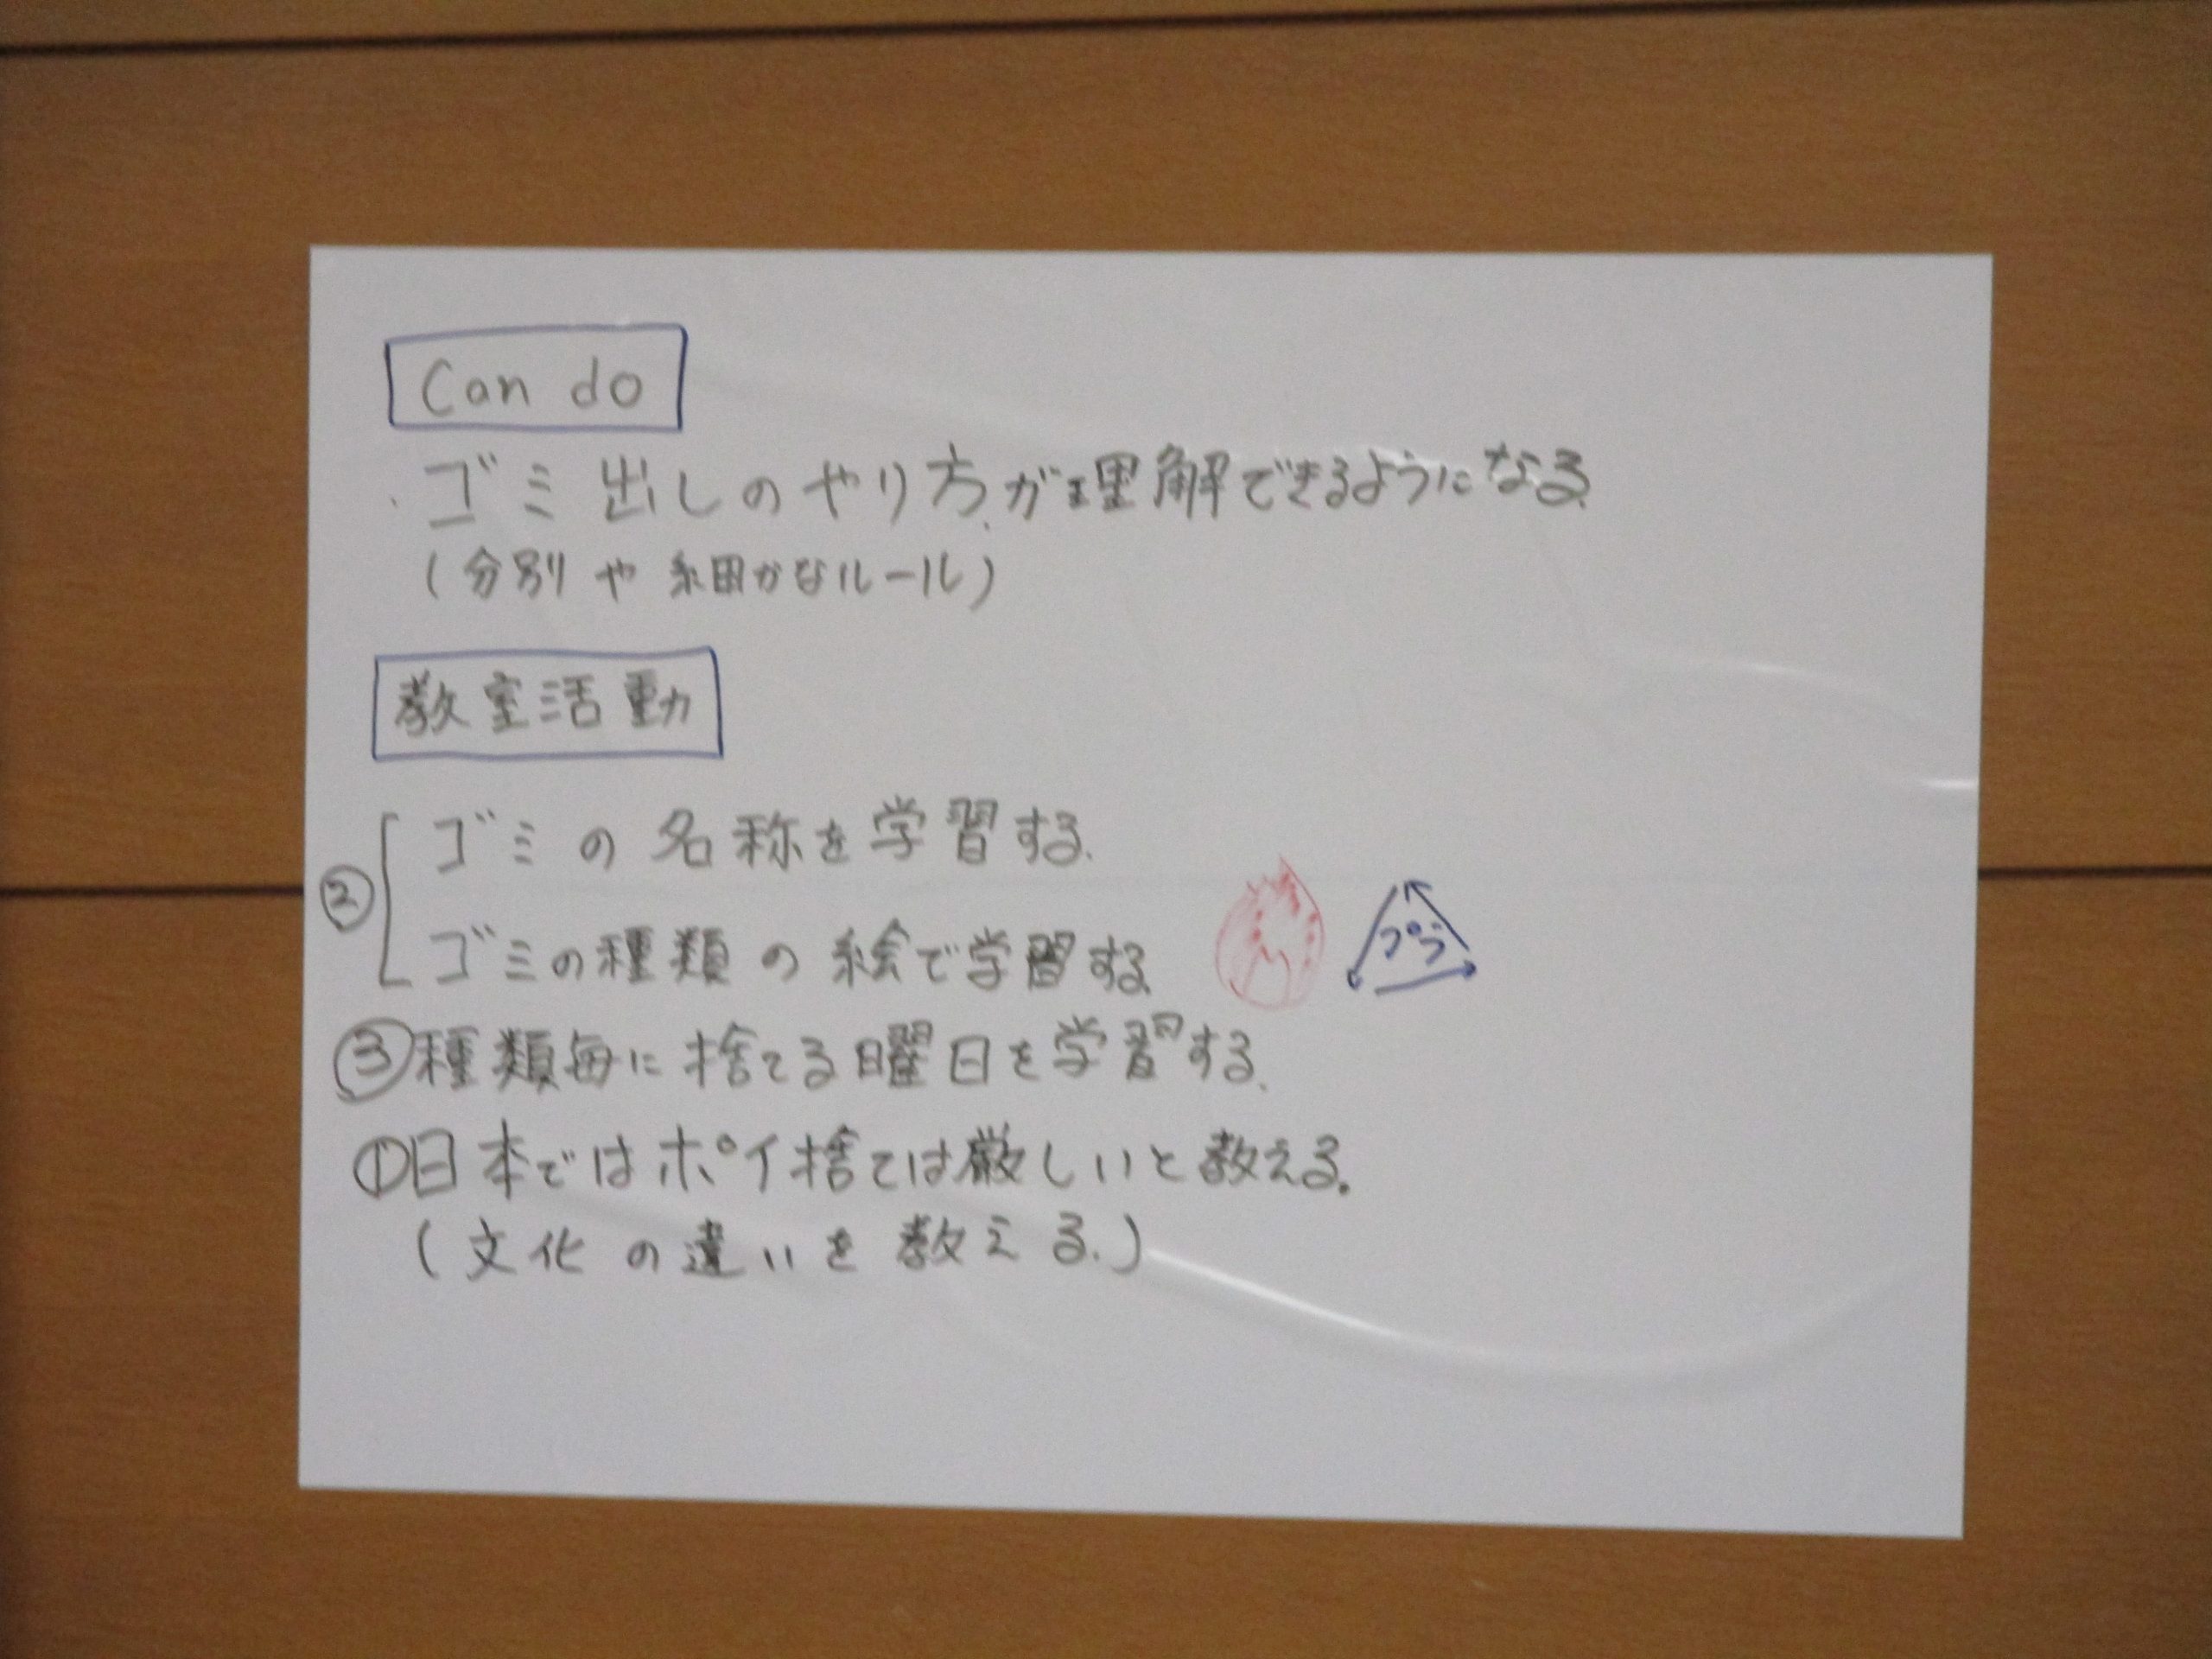 Can do
・ゴミ出しのやり方が理解できるようになる。
(分別や細かなルール)
教室活動
② ゴミの名称を学習する。
ゴミの種類の絵で学習する。
プラ
③種類毎に捨てる曜日を学習する。
①日本ではポイ捨ては厳しいと教える。
(文化の違いを教える。)